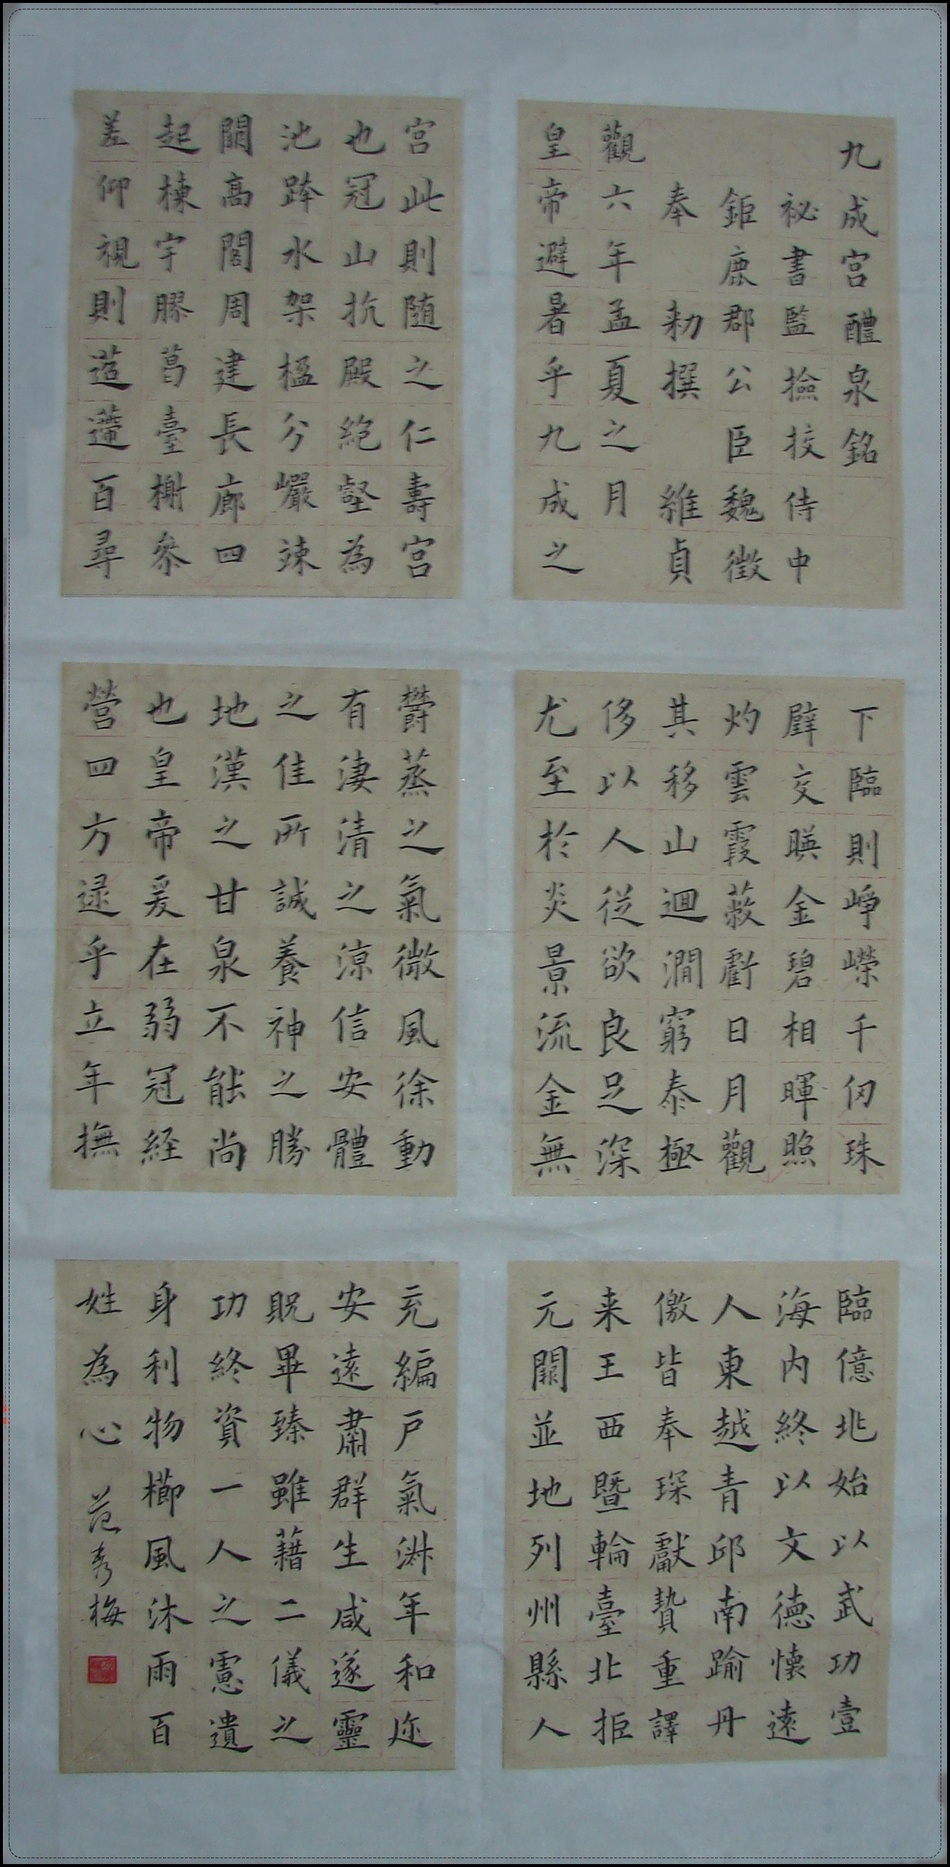 九成宮醴泉銘
祕書監撿挍侍中
鉅鹿郡公臣魏徵
奉勅撰維貞
觀六年孟夏之月
皇帝避暑乎九成之
宮此則随之仁壽宮
也冠山抗殿絶壑為
池跨水架楹分巖竦
闕高閣周建長廊四
起棟宇膠葛臺榭叅
差仰視則迢遰百尋
下臨則崢嶸千仞珠
壁交暎金碧相暉照
灼雲霞蔽虧日月觀
其移山迴澗窮泰極
侈以人從欲良足深
尤至於炎景流金無
欝蒸之氣微風徐動
有淒清之涼信安體
之佳所誠養神之勝
地漢之甘泉不能尚
也皇帝爰在弱冠經
營四方逮乎立年撫
臨億兆始以武功壹
海內終以文德懷遠
人東越青邱南踰丹
儌皆奉琛獻贄重譯
来王西暨輪臺北拒
元闕並地列州縣人
充編戶氣淋年和迩
安遠肅群生咸遂靈
貺畢臻雖藉二儀之
功終資一人之慮遺
身利物櫛風沐雨百
姓為心 范秀梅